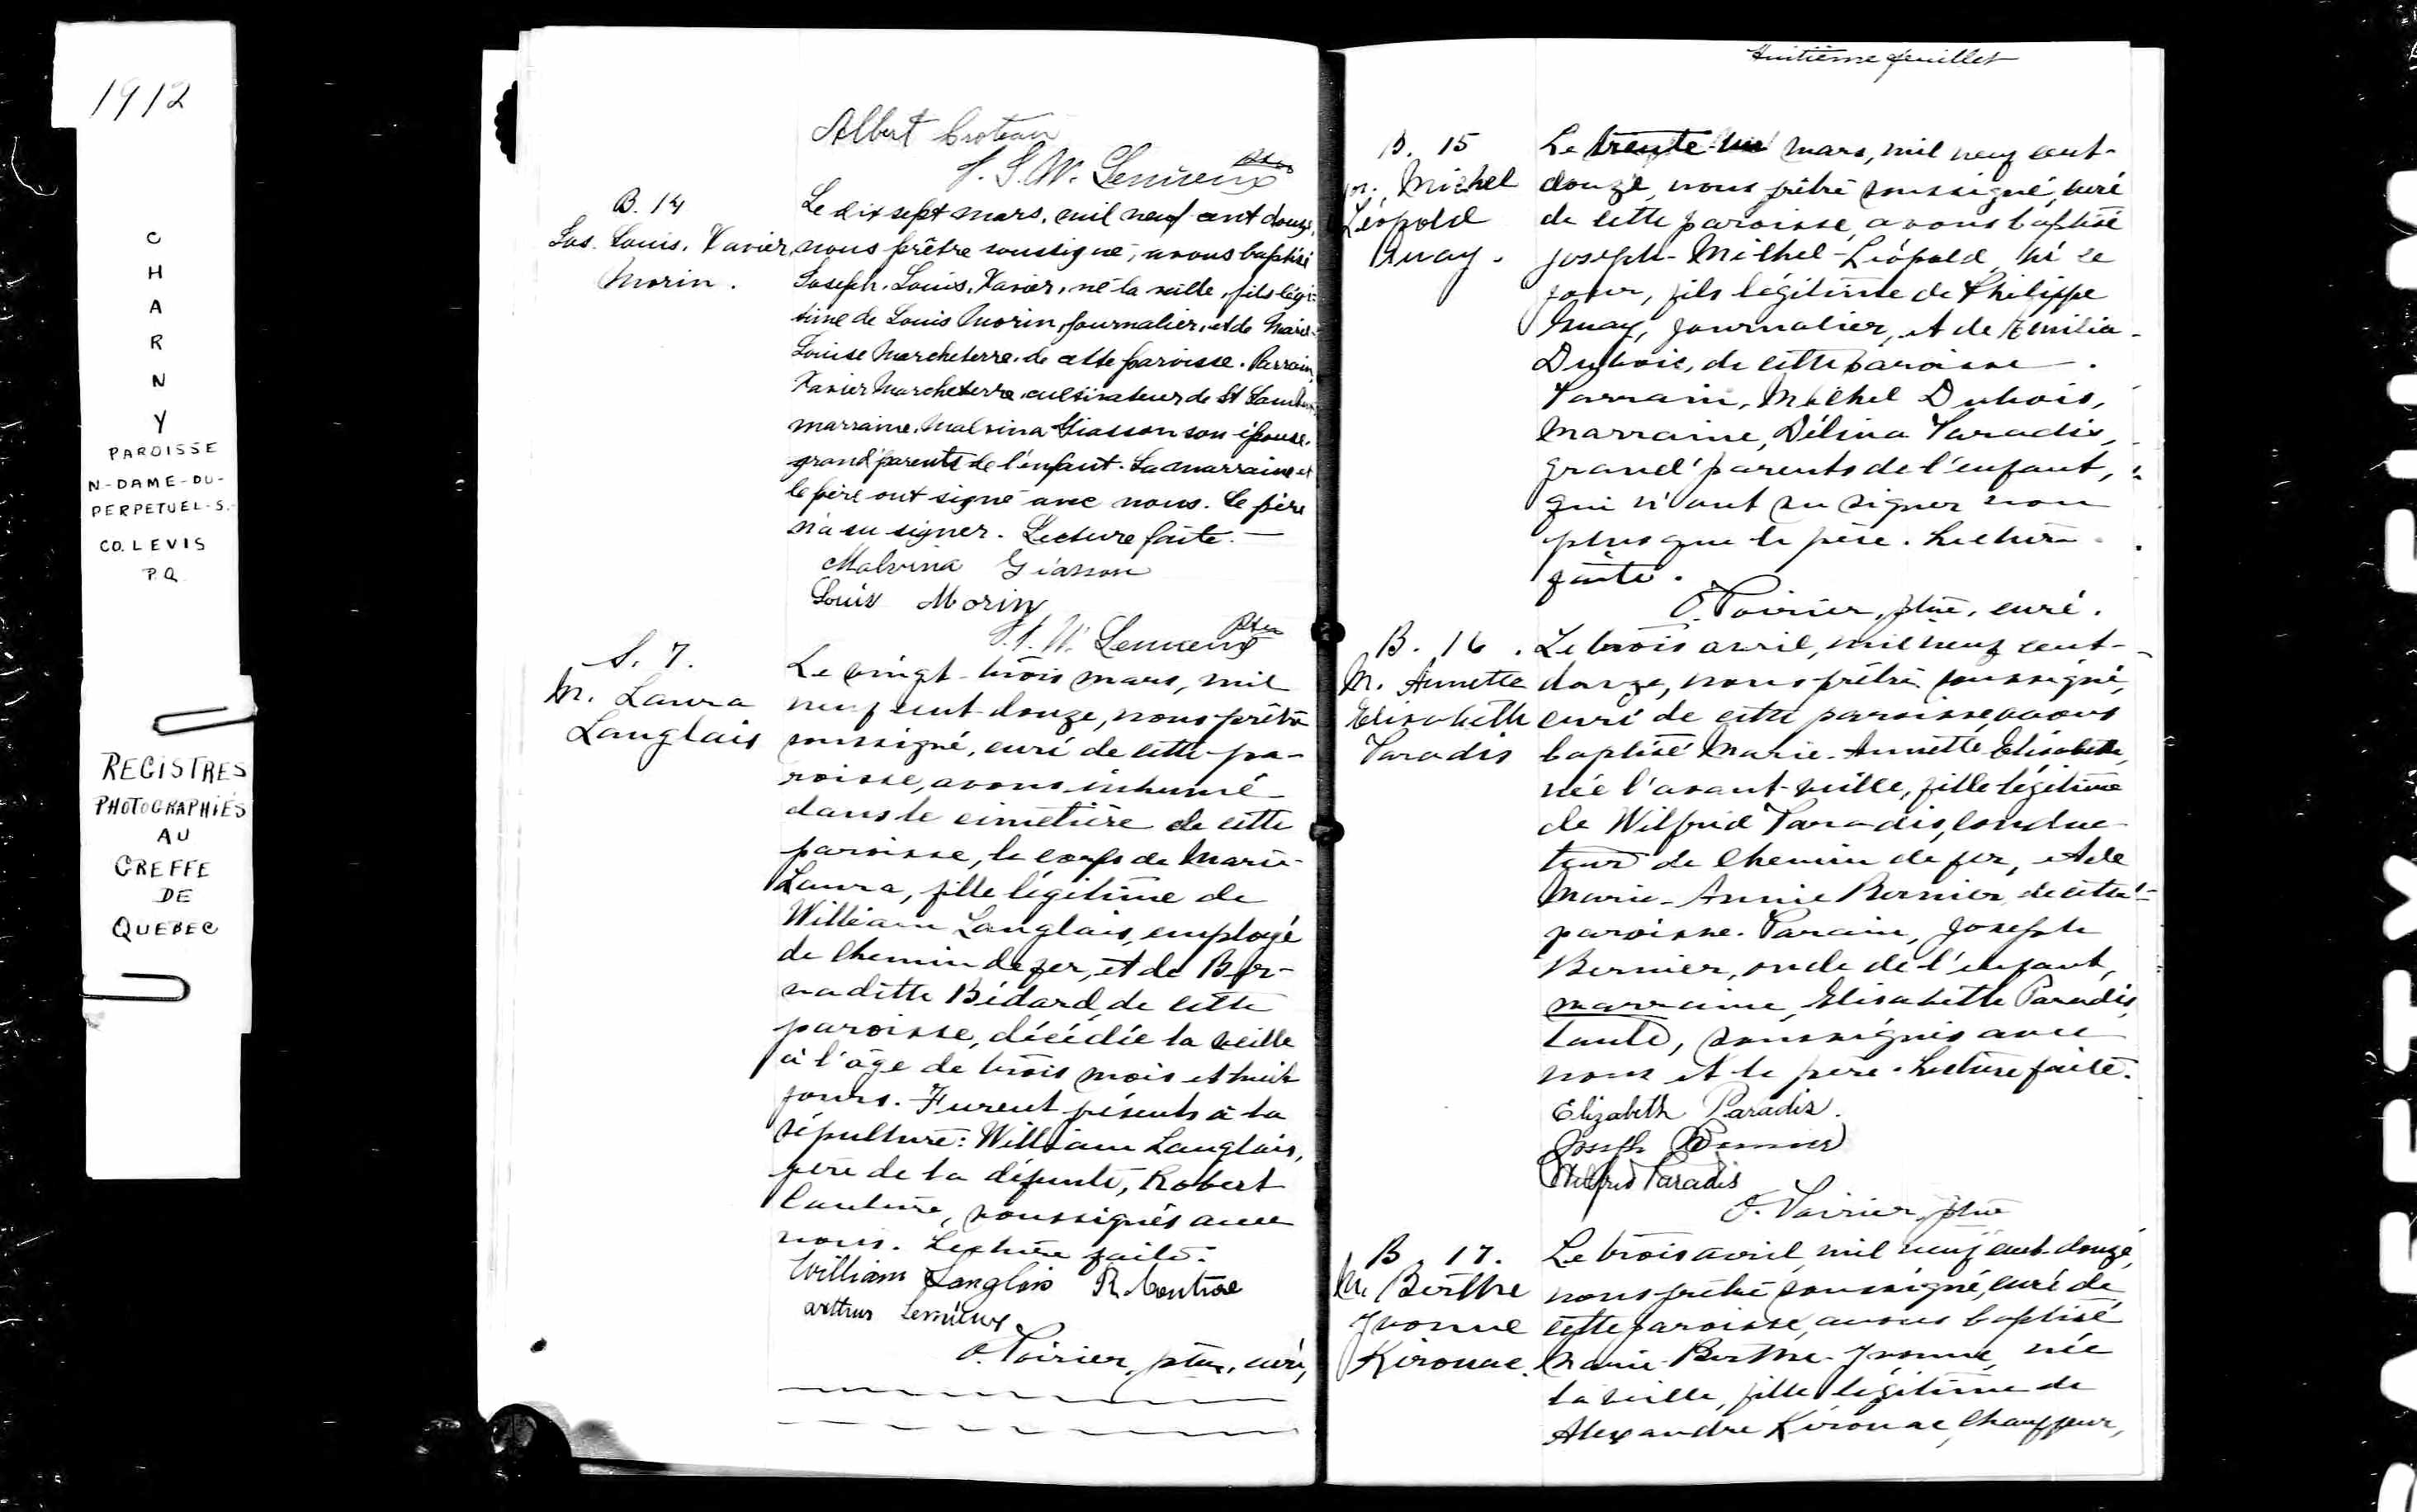 1912
C
H
A
R
N
Y
PAROISSE
N-DAME-DU-
PERPETUEL-S.
CO. LEVIS
P.Q.
REGISTRES
PHOTOGRAPHIÉS
AU
GREFFE
DE
QUEBEC
Albert Croteau
J. G. W. Lemieux ptre
B. 14
Jos. Louis. Xavier
Morin.
Le dix sept mars, mil neuf cent douze,
nous prêtre soussigné, avons baptisé
Joseph. Louis. Xavier, né la veille, fils légi-
time de Louis Morin, journalier, et de Marie-
Louise Marcheterre, de cette paroisse. Parrain,
Xavier Marcheterre, cultivateur de St Lambert
marraine, Malvina Giasson son épouse,
grand'parents de l'enfant. La marraine et
le père ont signé avec nous. Le père
n'a su signer. Lecture faite.
Malvina Giasson
Louis Morin
J. G. W. Lemieux ptre
S. 7.
M. Laura
Langlais
Le vingt-trois mars, mil
neuf cent-douze, nous prêtre
soussigné, curé de cette pa-
roisse, avons inhumé
dans le cimetière de cette
paroisse, le corps de Marie-
Laura, fille légitime de
William Langlais, employé
de chemin de fer, et de Ber-
nadette Bédard, de cette
paroisse, décédée la veille
à l'âge de trois mois et huit
jours. Furent présents à la
sépulture: William Langlais,
père de la défunte, Robert
Couture, soussignés avec
nous. Lecture faite.
William Langlois R. Couture
arthur Lemieux
O. Poirier, ptre, curé,
Huitième feuillet
B. 15
Jos. Michel
Léopold
Guay.
Le trente-un mars, mil neuf cent-
douze, nous prêtre soussigné, curé
de cette paroisse, avons baptisé
Joseph-Michel-Léopold, né ce
jour, fils légitime de Philippe
Guay, journalier, et de Emilia
Dubois, de cette paroisse.
Parrain, Michel Dubois,
Marraine, Délina Paradis,
grand'parents de l'enfant,
qui n'ont su signer non
plus que le père. Lecture
faite.
O. Poirier, ptre, curé.
B. 16.
M. Annette
Elisabeth
Paradis
Le trois avril, mil neuf cent-
douze, nous prêtre soussigné,
curé de cette paroisse, avons
baptisé Marie-Annette Elisabeth,
née l'avant-veille, fille légitime
de Wilfrid Paradis, conduc-
teur de chemin de fer, et de
Marie-Annie Bernier, de cette
paroisse. Parain, Joseph
Bernier, oncle de l'enfant,
marraine, Elisabeth Paradis,
tante, soussignés avec
nous et le père. Lecture faite.
Elizabeth Paradis.
Joseph Bernier
Wilfrid Paradis
O. Poirier, ptre
B. 17.
M. Berthe
Yvonne
Kirouac.
Le trois avril, mil neuf cent-douze,
nous prêtre soussigné, curé de
cette paroisse, avons baptisé
Marie-Berthe-Yvonne, née
la veille, fille légitime de
Alexandre Kirouac, chauffeur,